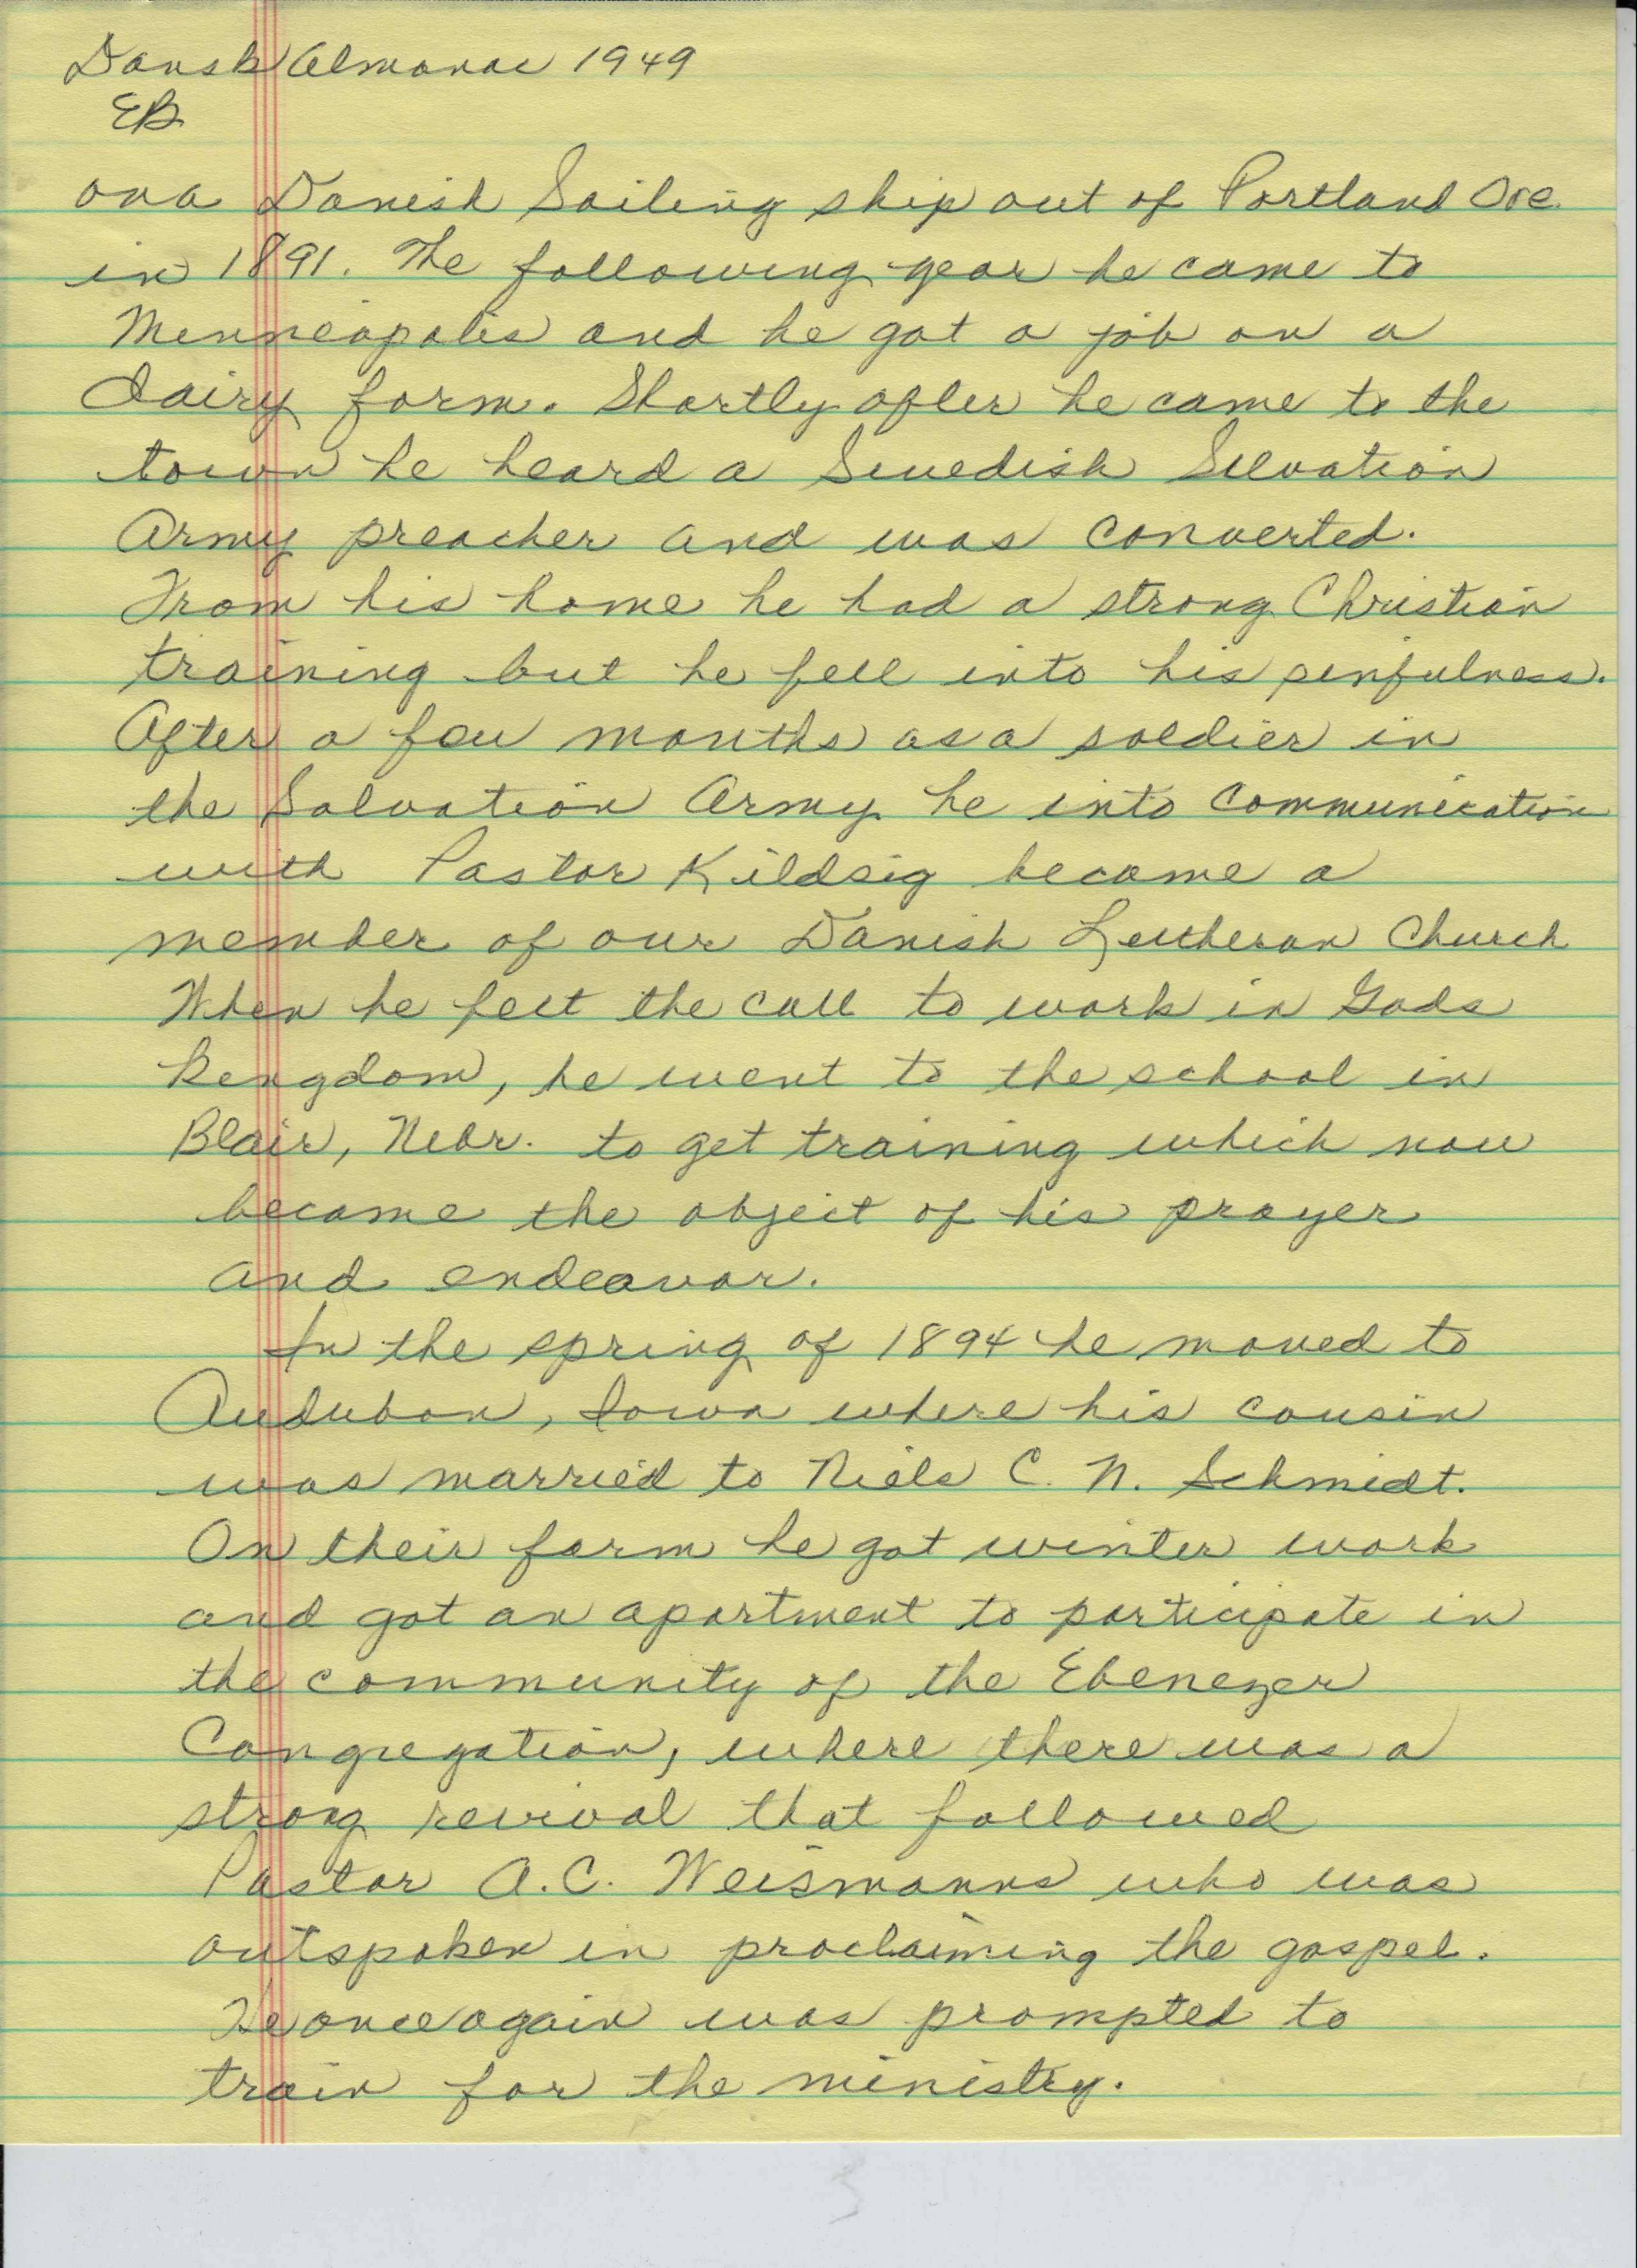 Dansk Almanac 1949
EB
on a Danish Sailing ship out of Portland Ore.
in 1891. The following year he came to
Minneapolis and he got a job on a
dairy farm. Shortly after he came to the
town he heard a Swedish Silvation
Army preacher and was converted.
From his home he had a strong Christian
training but he fell into his sinfulness.
After a few months as a soldier in
the Salvation Army he into communication
with Pastor Kildsig became a
member of our Danish Lutheran Church
When he felt the call to work in Gods
Kingdom, he went to the school in
Blair, Nebr. to get training which now
became the object of his prayer
and endeavor.
In the spring of 1894 he moved to
Audubon, Iowa where his cousin
was married to Niels C. N. Schmidt.
On their farm he got winter work
and got an apartment to participate in
the community of the Ebenezer
Congregation, where there was a
strong revival that followed
Pastor A.C. Weismanns who was
outspoken in proclaiming the gospel.
He once again was prompted to
train for the ministry.